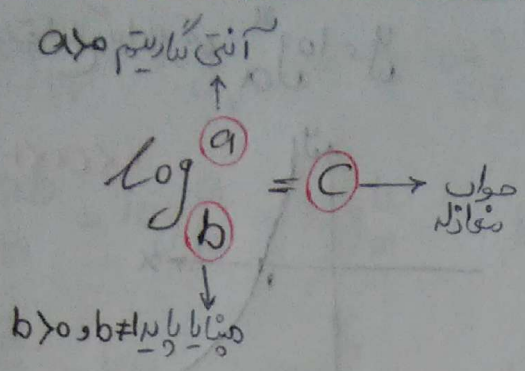 آنتی لگاریتم a>0
log_b^a = C → جواب
معادله
مبنا یا پایه b>0 و b≠1